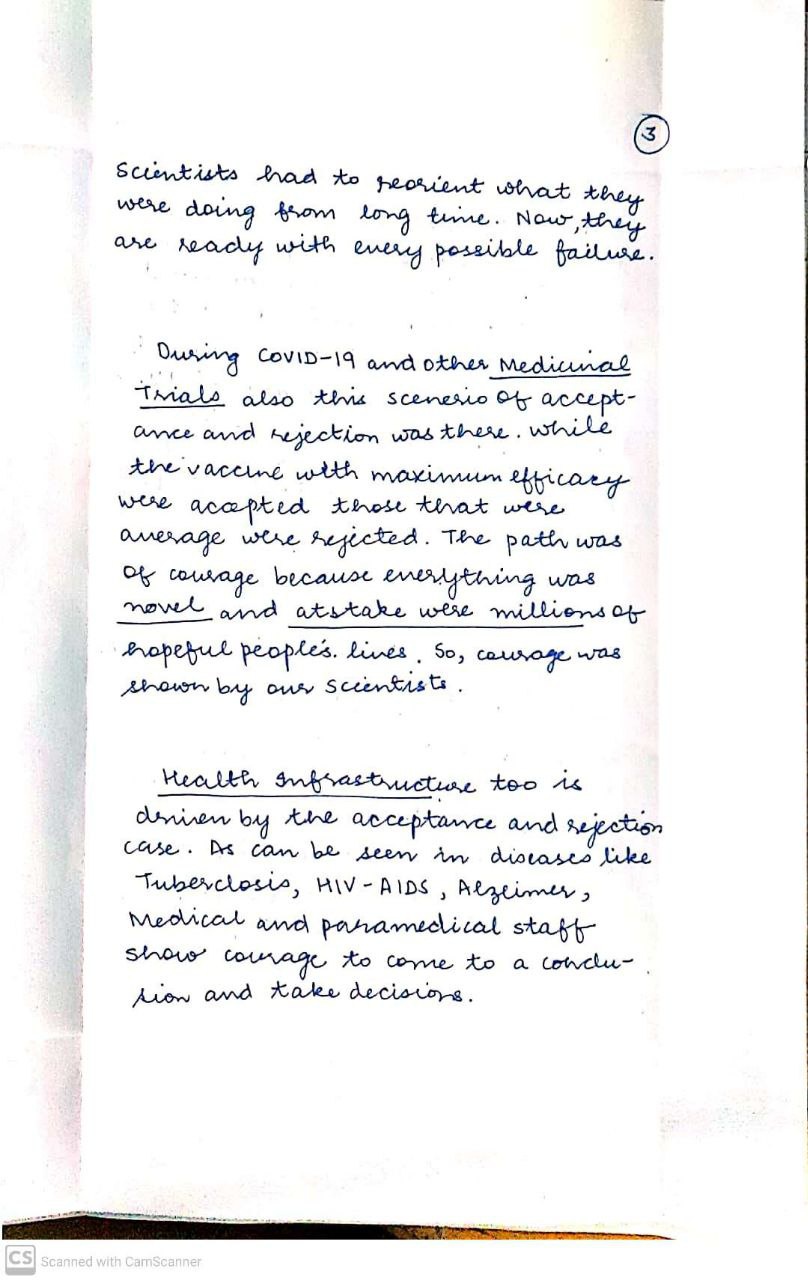 3
Scientists had to reorient what they
were doing from long time. Now, they
are ready with every possible failure.
During COVID-19 and other Medicinal
Trials also this scenerio of accept-
ance and rejection was there. While
the vaccine with maximum efficacy
were accepted those that were
average were rejected. The path was
of courage because everything was
novel and at stake were millions of
hopeful people's lives. So, courage was
shown by our scientists.
Health Infrastructure too is
driven by the acceptance and rejection
case. As can be seen in diseases like
Tuberclosis, HIV-AIDS, Alzeimer,
Medical and paramedical staff
show courage to come to a conclu-
sion and take decisions.
CS Scanned with CamScanner